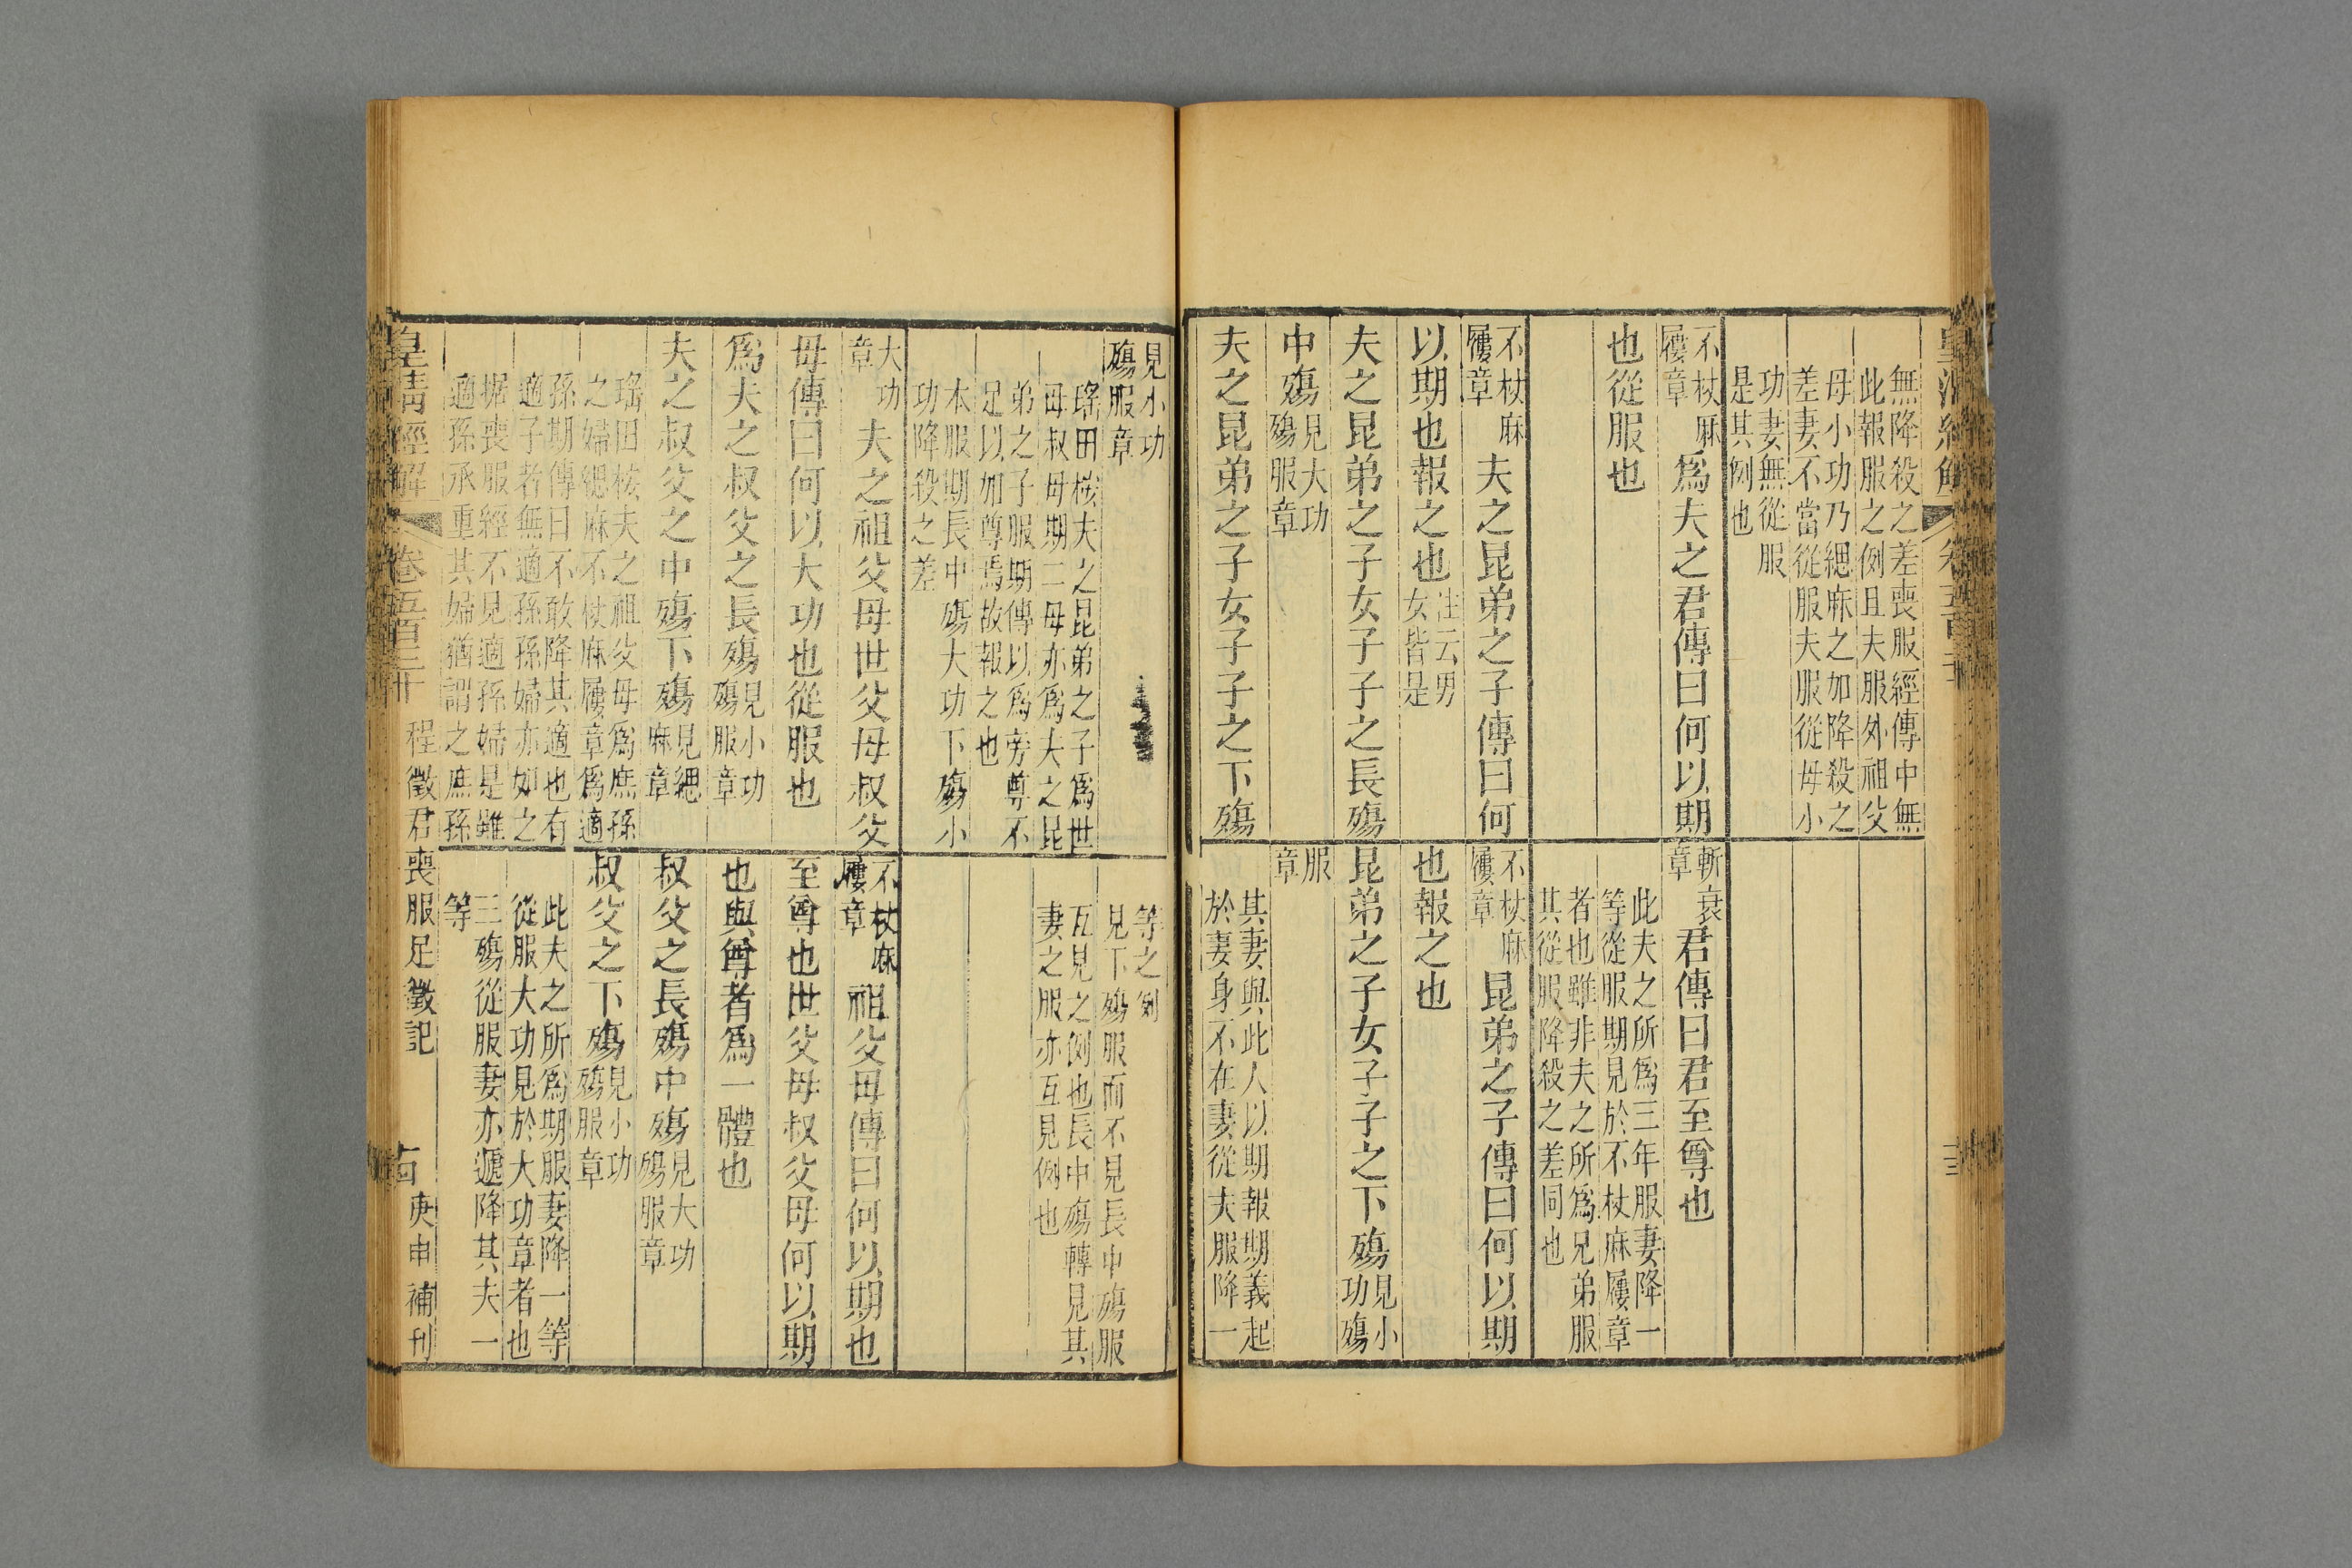 無降殺之差喪服經傳中無
此報服之例且夫服外祖父
母小功乃緦麻之加降殺之
差妻不當從服夫服從母小
功妻無從服
是其例也
不杖麻
屨章
爲夫之君傳曰何以期
也從服也
不杖麻
屨章
夫之昆弟之子傳曰何
以期也報之也
注云男
女皆是
夫之昆弟之子女子子之長殤
中殤
見大功
殤服章
夫之昆弟之子女子子之下殤
斬衰
章
君傳曰君至尊也
此夫之所爲三年服妻降一
等從服期見於不杖麻屨章
者也雖非夫之所爲兄弟服
其從服降殺之差同也
不杖麻
屨章
昆弟之子傳曰何以期
也報之也
昆弟之子女子子之下殤
見小
功殤
服
章
其妻與此人以期報期義起
於妻身不在妻從夫服降一
見小功
殤服章
瑤田桉夫之昆弟之子爲世
母叔母期二母亦爲夫之昆
弟之子服期傳以爲旁尊不
足以加尊焉故報之也
本服期長中殤大功下殤小
功降殺之差
大功
章
夫之祖父母世父母叔父
母傳曰何以大功也從服也
爲夫之叔父之長殤
見小功
殤服章
夫之叔父之中殤下殤
見緦
麻章
瑤田桉夫之祖父母爲庶孫
之婦緦麻不杖麻屨章爲適
孫期傳曰不敢降其適也有
適子者無適孫孫婦亦如之
据喪服經不見適孫婦是雖
適孫承重其婦猶謂之庶孫
等之例
見下殤服而不見長中殤服
互見之例也長中殤轉見其
妻之服亦互見例也
不杖麻
屨章
祖父母傳曰何以期也
至尊也世父母叔父母何以期
也與尊者爲一體也
叔父之長殤中殤
見大功
殤服章
叔父之下殤
見小功
殤服章
此夫之所爲期服妻降一等
從服大功見於大功章者也
三殤從服妻亦遞降其夫一
等
皇清經解
卷五百三十
程徵君喪服足徵記
庚申補刊